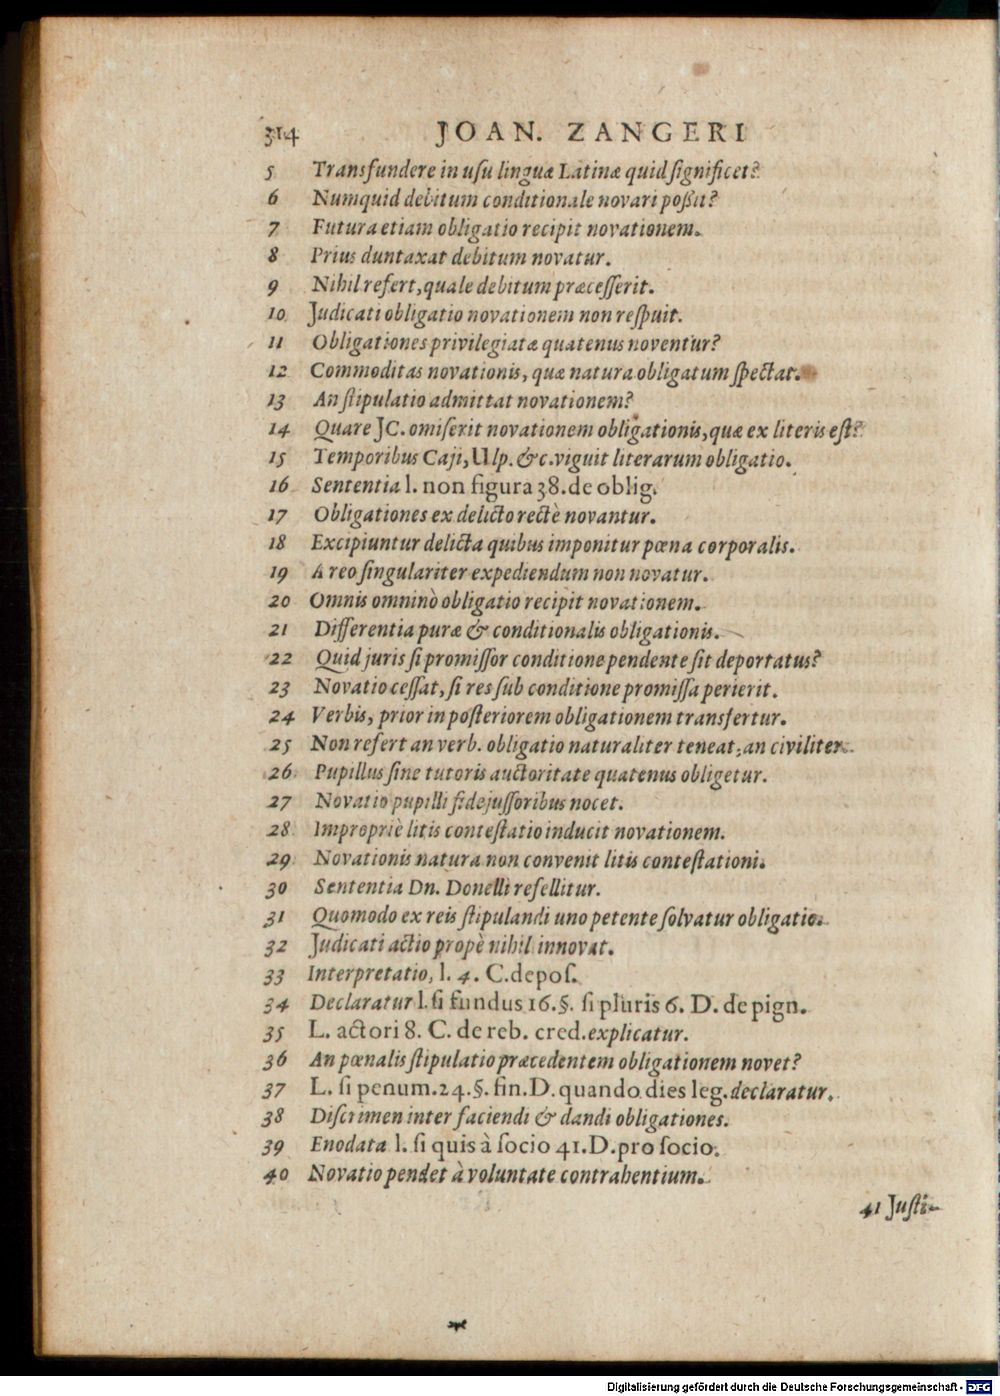 314 JOAN. ZANGERI
5 Transfundere in usu linguæ Latinæ quid significet?
6 Numquid debitum conditionale novari poßit?
7 Futura etiam obligatio recipit novationem.
8 Prius duntaxat debitum novatur.
9 Nihil refert, quale debitum præcesserit.
10 Judicati obligatio novationem non respuit.
11 Obligationes privilegiatæ quatenus noventur?
12 Commoditas novationis, quæ natura obligatum spectat.
13 An stipulatio admittat novationem?
14 Quare JC. omiserit novationem obligationis, quæ ex literis est?
15 Temporibus Caji, Ulp. &c. viguit literarum obligatio.
16 Sententia l. non figura 38. de oblig.
17 Obligationes ex delicto rectè novantur.
18 Excipiuntur delicta quibus imponitur pœna corporalis.
19 A reo singulariter expediendum non novatur.
20 Omnis omninò obligatio recipit novationem.
21 Differentia puræ & conditionalis obligationis.
22 Quid juris si promissor conditione pendente sit deportatus?
23 Novatio cessat, si res sub conditione promissa perierit.
24 Verbis, prior in posteriorem obligationem transfertur.
25 Non refert an verb. obligatio naturaliter teneat, an civiliter.
26 Pupillus sine tutoris auctoritate quatenus obligetur.
27 Novatio pupilli fidejussoribus nocet.
28 Impropriè litis contestatio inducit novationem.
29 Novationis natura non convenit litis contestationi.
30 Sententia Dn. Donelli refellitur.
31 Quomodo ex reis stipulandi uno petente solvatur obligatio.
32 Judicati actio propè nihil innovat.
33 Interpretatio, l. 4. C. depos.
34 Declaratur l. si fundus 16. §. si pluris 6. D. de pign.
35 L. actori 8. C. de reb. cred. explicatur.
36 An pœnalis stipulatio præcedentem obligationem novet?
37 L. si penum. 24. §. fin. D. quando dies leg. declaratur.
38 Discrimen inter faciendi & dandi obligationes.
39 Enodata l. si quis à socio 41. D. pro socio.
40 Novatio pendet à voluntate contrahentium.
41 Justi-
Digitalisierung gefördert durch die Deutsche Forschungsgemeinschaft - DFG